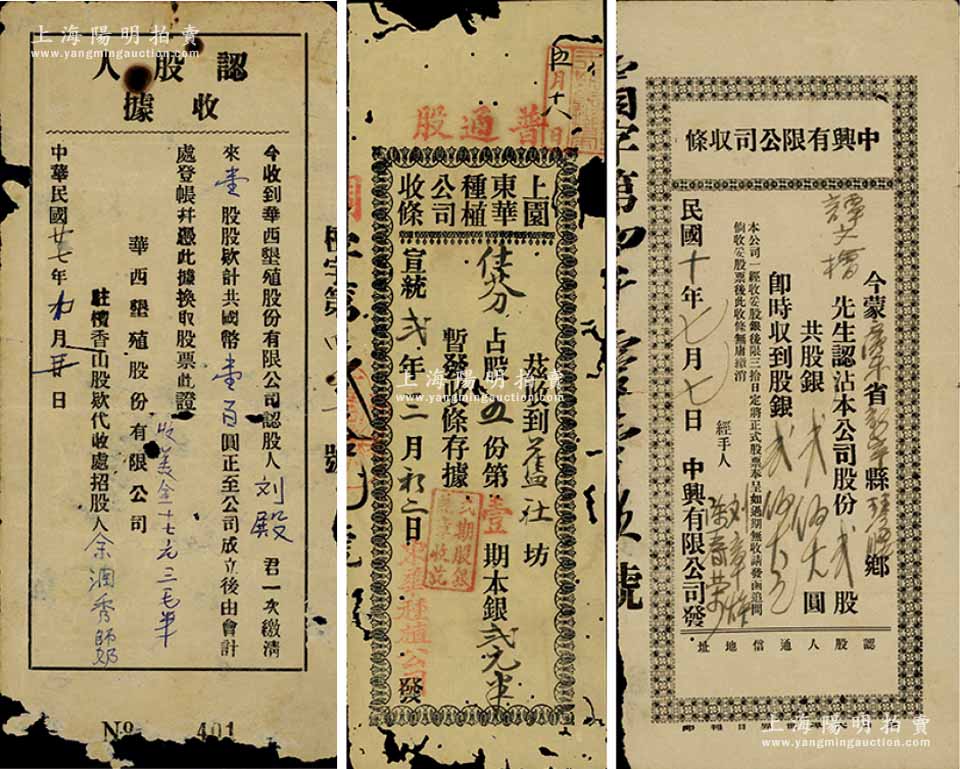 上海陽明拍賣
www.yangmingauction.com
認股人
收據
今收到華西墾殖股份有限公司認股人刘殿君一次繳清
來壹股股欵計共國幣壹百圓正至公司成立後由會計
處登帳幷憑此據換取股票此證
收美金十七元三毛半
華西墾殖股份有限公司
駐檀香山股欵代收處招股人余潤秀師奶
中華民國廿七年九月 日
№ 401
五月十八日
普通股
上園東華種植公司收條
茲收到 社坊
占股五份第壹期本銀弍元半
暫發收條存據
宣統弍年二月初二日
發
弍期股銀
東華種植公司
上海陽明拍賣
www.yangmingauction.com
字第
號
中興有限公司收條
今蒙廣東省新寧縣 鄉
譚文 先生認沾本公司股份弍股
共股銀弍佰大圓
卽時收到股銀弍佰大元
本公司一經收妥股銀後限三拾日定將正式股票奉呈如過期無收請發函追問
倘收妥股票後此收條無庸繳消
經手人
民國十年七月七日
中興有限公司發
認股人通信地址
上海陽明拍賣
www.yangmingauction.com